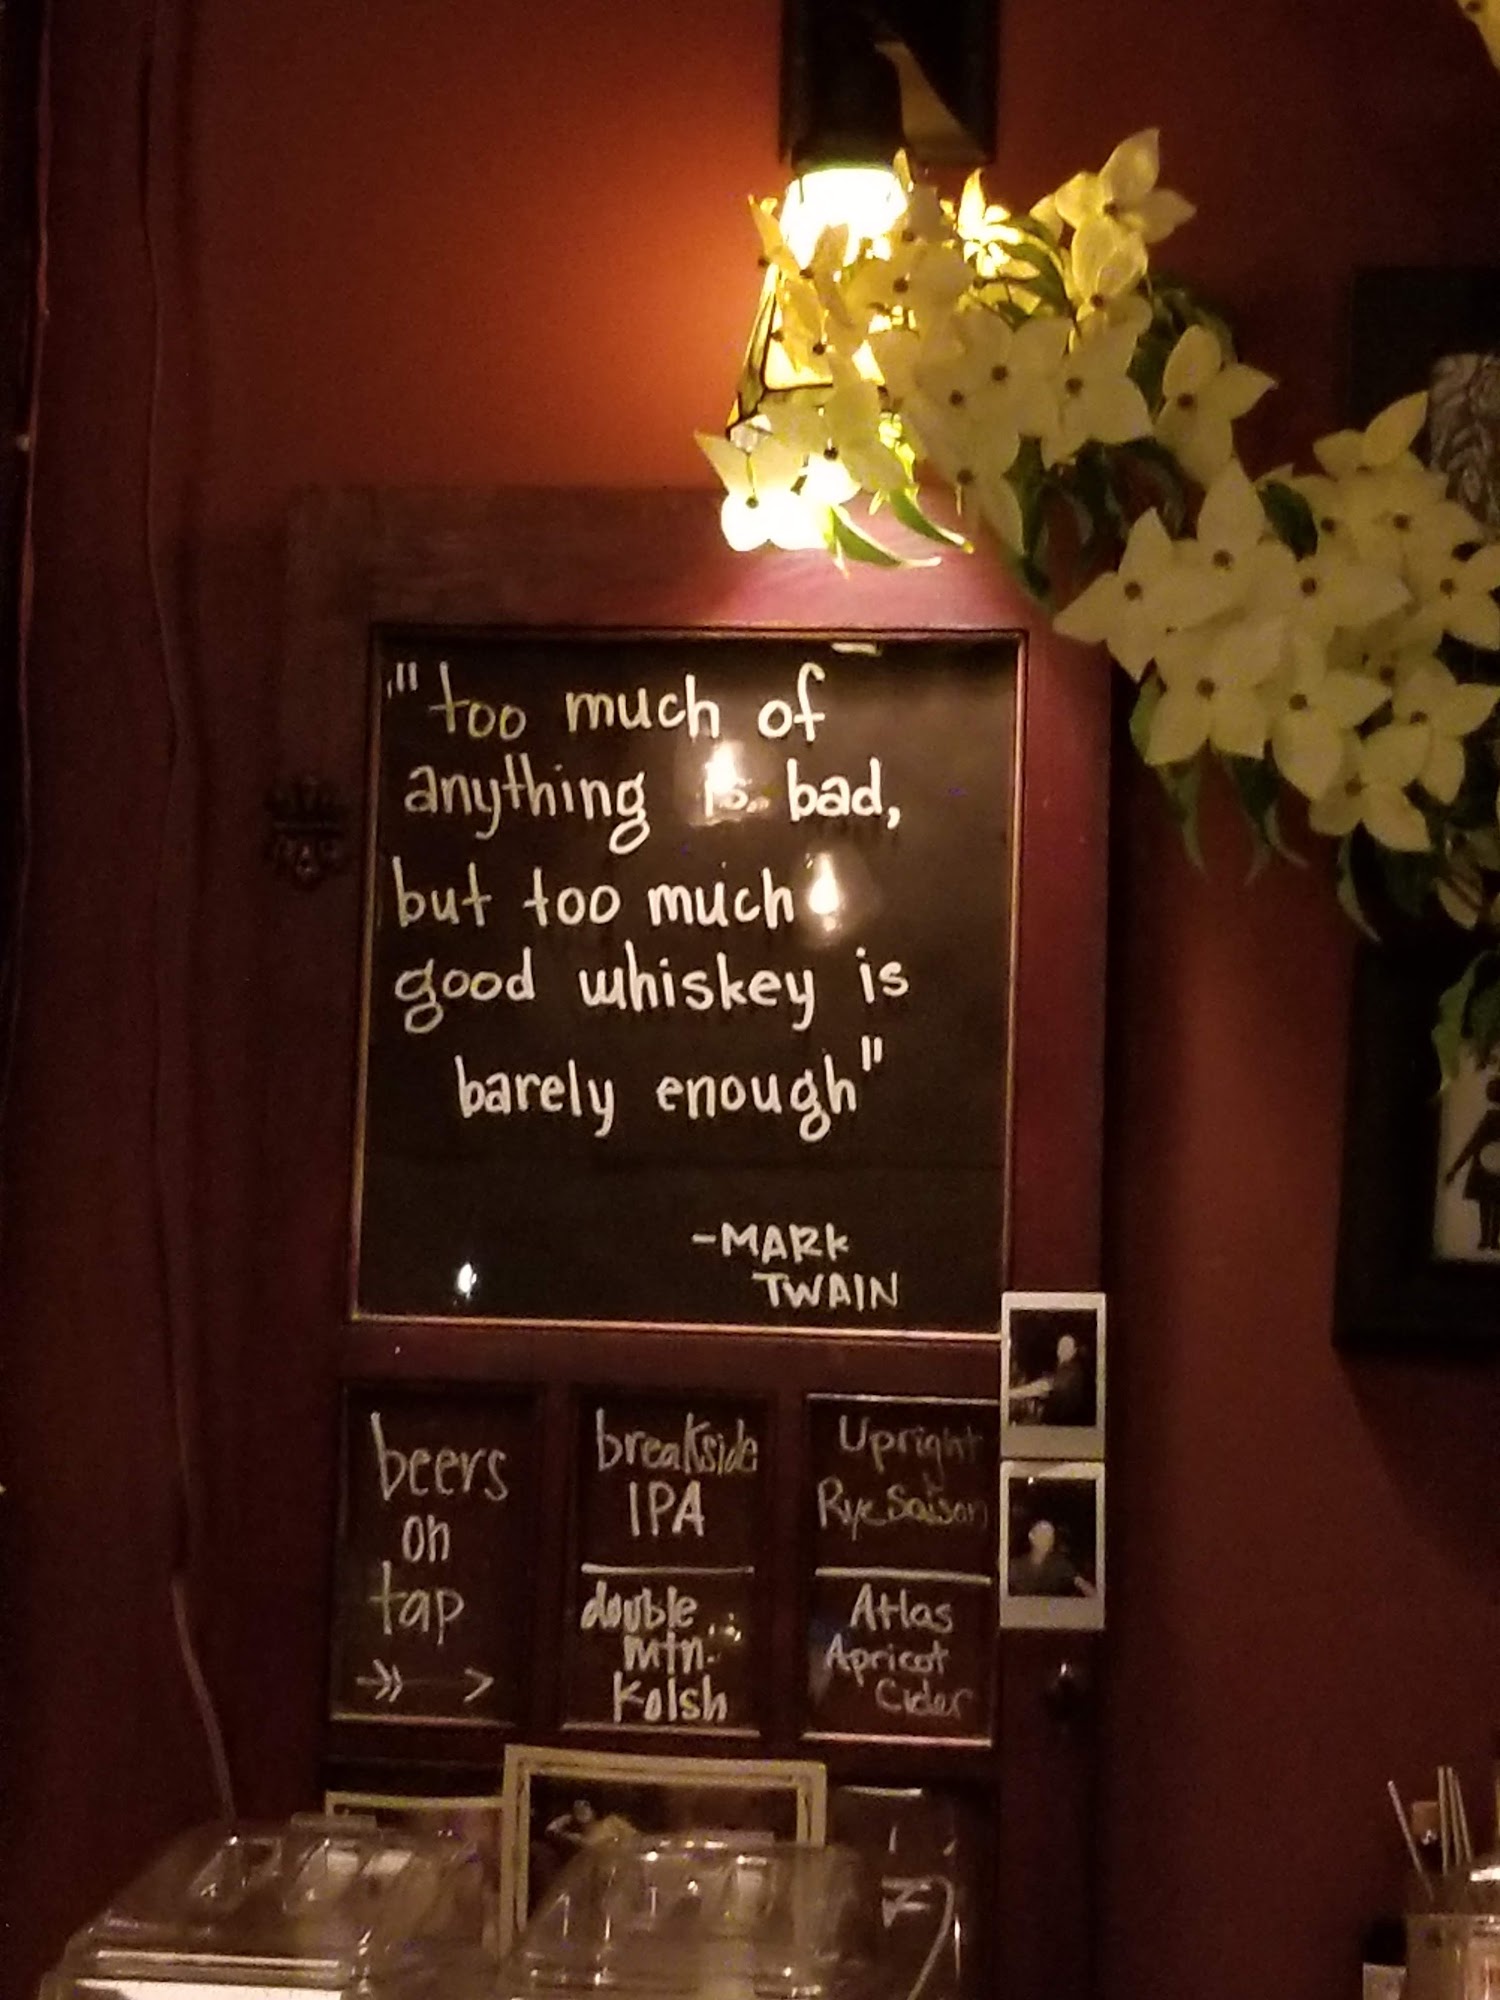 "too much of
anything is bad,
but too much
good whiskey is
barely enough"
-MARK
TWAIN
beers
on
tap
breakside
IPA
double
mtn.
Kolsh
Upright
Rye Saison
Atlas
Apricot
Cider